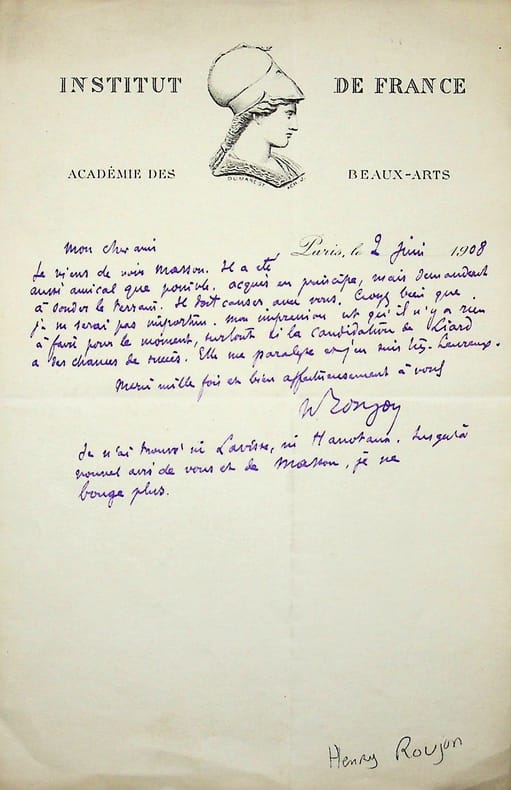 INSTITUT DE FRANCE
ACADÉMIE DES BEAUX-ARTS
DUMAREST
Paris, le 2 Juin 1908
Mon cher ami
Je viens de voir Masson. Il a été
aussi amical que possible. acquis en principe, mais demandant
à sonder le terrain. Il doit causer avec vous. Croyez bien que
je ne serai pas importun. Mon impression est qu'il n'y a rien
à faire pour le moment, surtout si la candidature de Liard
a des chances de succès. Elle me paralyse et j'en suis très heureux.
Merci mille fois et bien affectueusement à vous
Roujon
Je n'ai trouvé ni Lavisse, ni Hanotaux. Jusqu'à
nouvel avis de vous et de Masson, je ne
bouge plus.
Henry Roujon